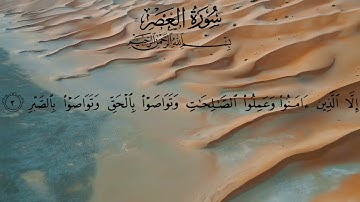 سُورَةُ العَصْرِ
بِسْمِ اللَّهِ الرَّحْمَٰنِ الرَّحِيمِ
إِلَّا ٱلَّذِينَ ءَامَنُوا۟ وَعَمِلُوا۟ ٱلصَّـٰلِحَـٰتِ وَتَوَاصَوْا۟ بِٱلْحَقِّ وَتَوَاصَوْا۟ بِٱلصَّبْرِ ٣